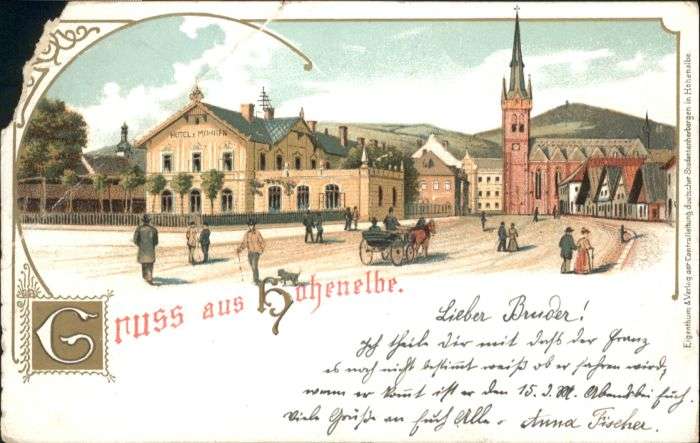 HOTEL z. MOHREN
Gruss aus Hohenelbe.
Lieber Bruder!
Ich theile Dir mit dass der Franz
es noch nicht bestimmt weiß ob er fahren wird,
wenn er kommt ist er den 15. d. M. Abends bei Euch.
Viele Grüße an Euch Alle. Anna Fischer.
Eigenthum & Verlag der Centralleitung deutscher Studentenherbergen in Hohenelbe